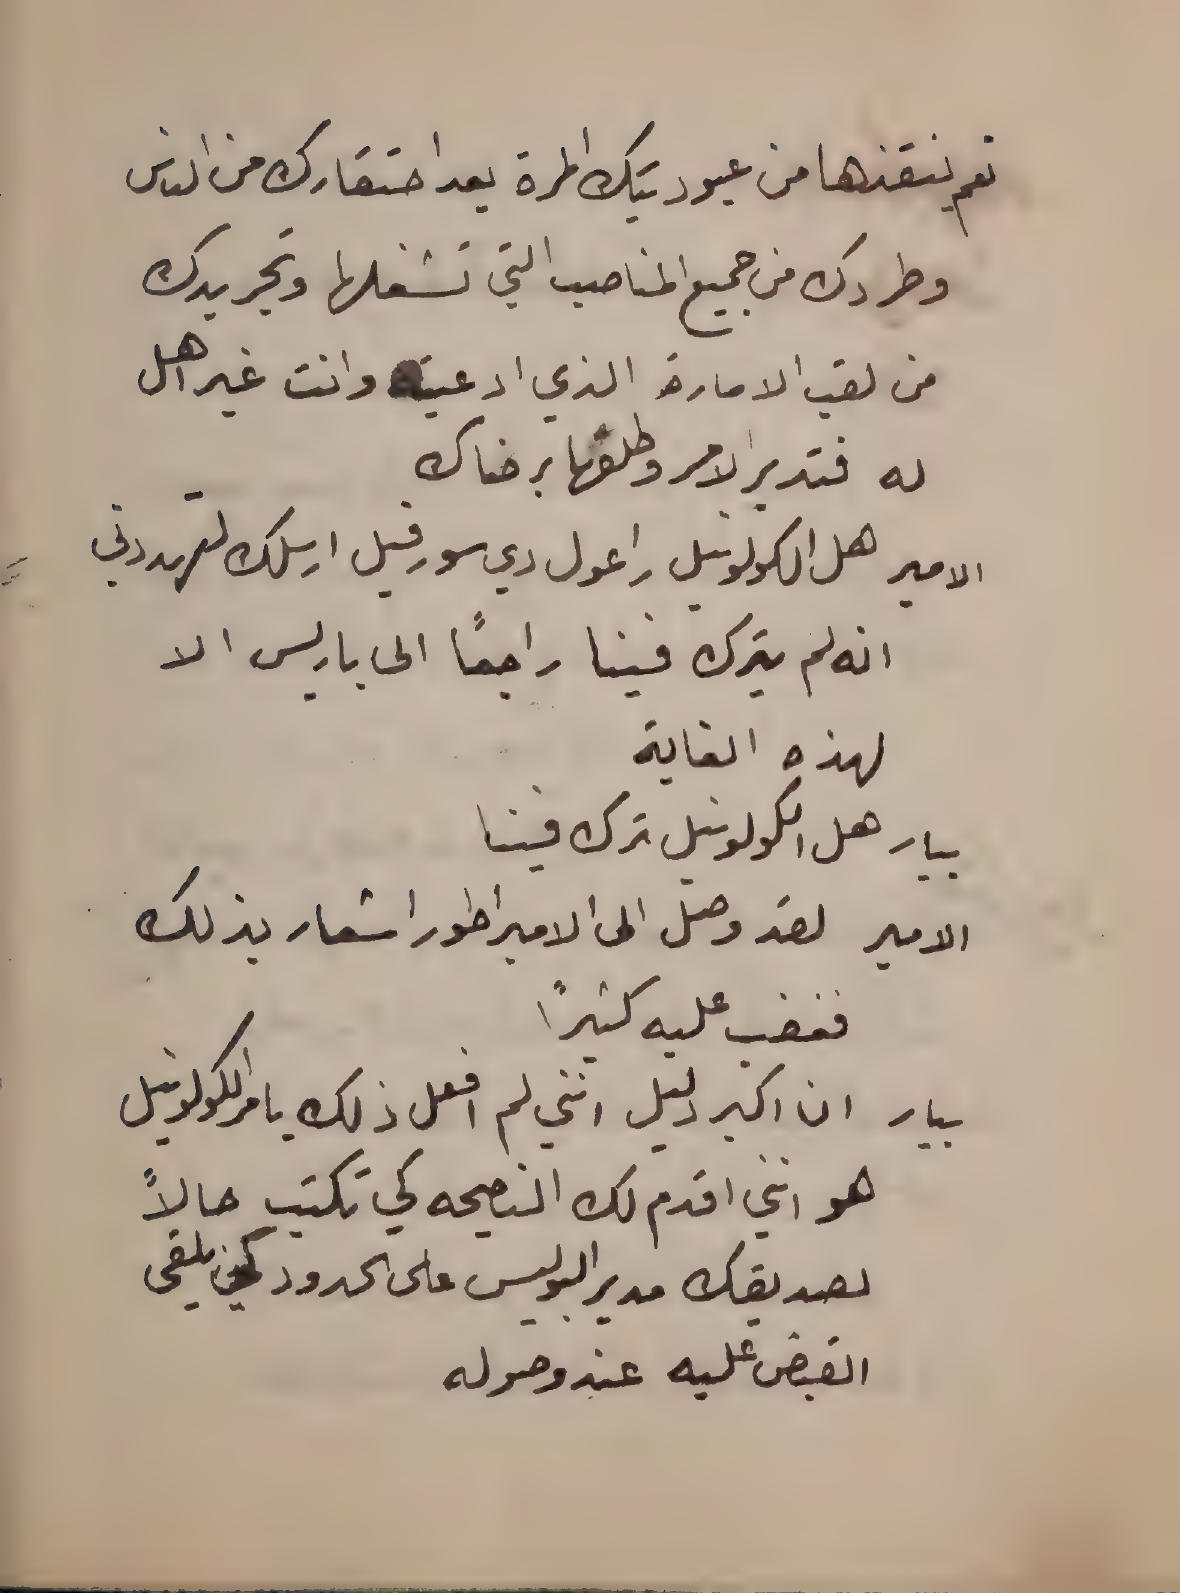 ثم ينقذها من عبوديتك المرة بعد احتقارك من الناس
وطردك من جميع المناصب التي تشغلها وتجريدك
من لقب الامارة الذي ادعيته وانت غير اهل
له فتدبر الامر وطلقها برضاك
الامير هل الكولونيل راعول دي سورفيل ارسلك لتهددني
انه لم يترك فينا راجعًا الى باريس الا
لهذه الغاية
بيار هل الكولونيل ترك فينا
الامير لقد وصل الى الامبراطور اشعار بذلك
فغضب عليه كثيرًا
بيار ان اكبر دليل انني لم افعل ذلك بامر الكولونيل
هو انني اقدم لك النصيحه كي تكتب حالاً
لصديقك مدير البوليس على الحدود كي يلقى
القبض عليه عند وصوله